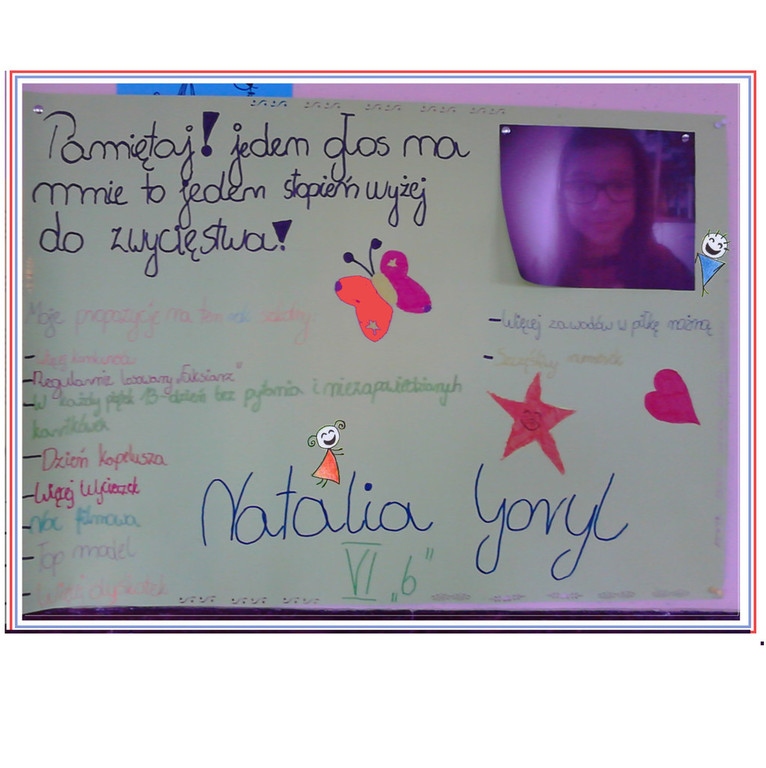 Pamiętaj! jeden głos na
mnie to jeden stopień wyżej
do zwycięstwa!
Moje propozycje na ten rok szkolny:
- Więcej konkursów
- Regularnie losowany „Luksiarz”
- W każdy piątek 13-dzień bez pytania i niezapowiedzianych
kartkówek
- Dzień kapelusza
- Więcej Wycieczek
- Noc filmowa
- Top model
- Więcej dyskotek
- Więcej zawodów w piłkę nożną
- Szczęśliwy numerek
Natalia
VI „b”